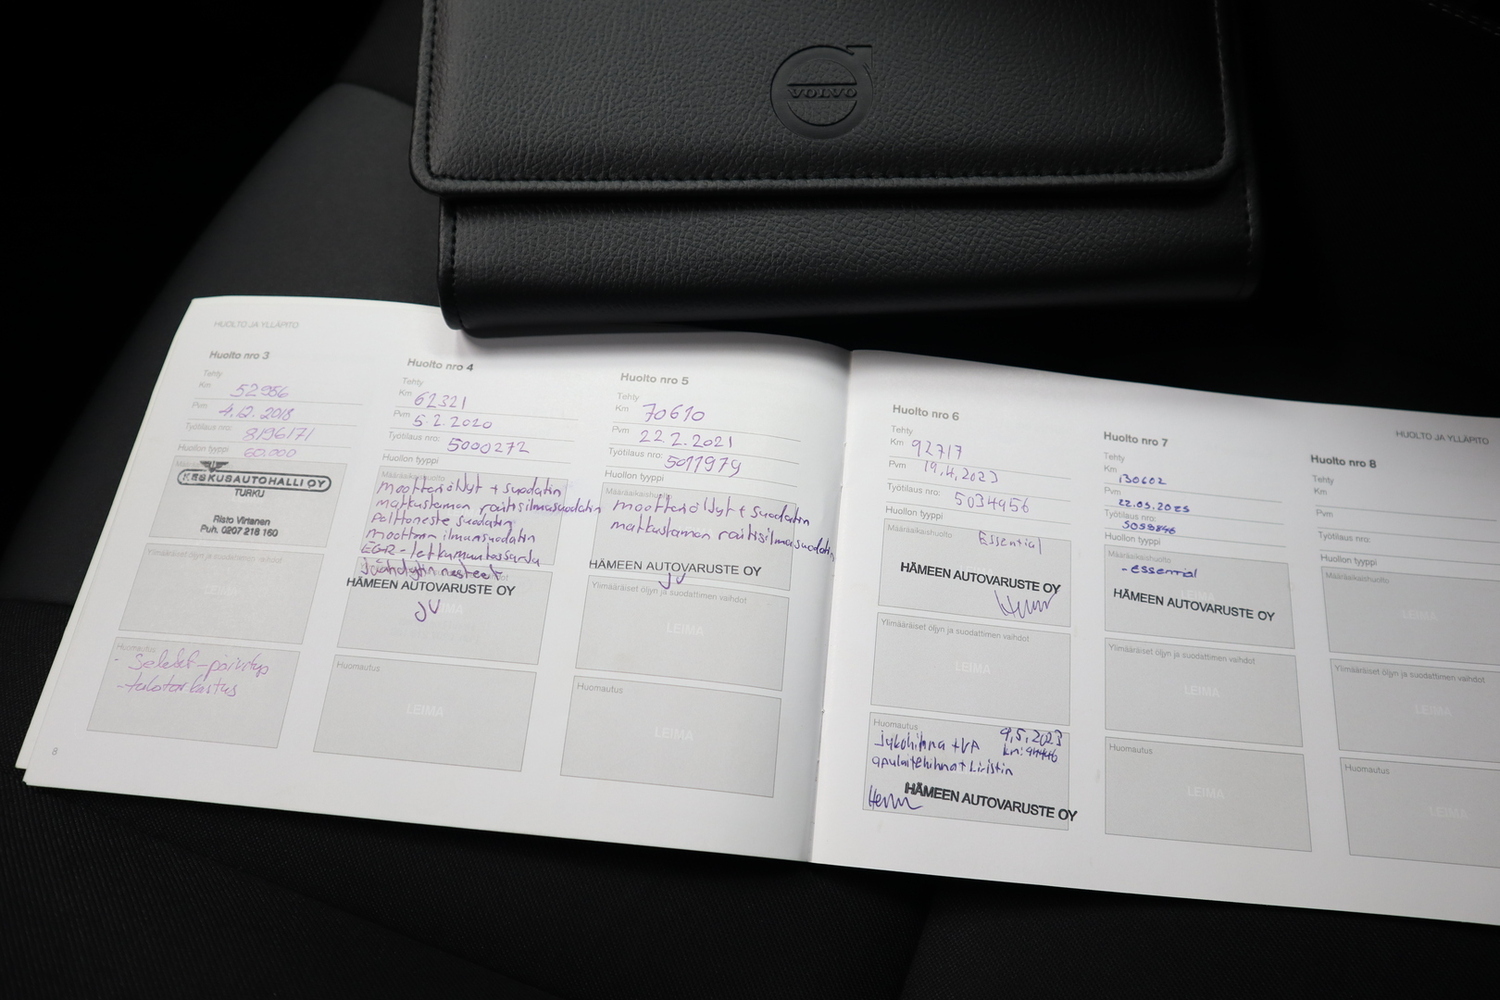 VOLVO
HUOLTO JA YLLÄPITO
Huolto nro 3
Tehty
Km 52956
Pvm 4.12.2018
Työtilaus nro: 8196171
Huollon tyyppi 60.000
KESKUSAUTOHALLI OY
TURKU
Risto Virtanen
Puh. 0207 218 160
Ylimääräiset öljyn ja suodattimen vaihdot
Huomautus
- Selekt-päivitys
- talotarkastus
8
Huolto nro 4
Tehty
Km 62321
Pvm 5.2.2020
Työtilaus nro: 5000272
Huollon tyyppi
Määräaikaishuolto
moottoriöljyt + suodatin
matkustamon raitisilmasuodatin
polttoneste suodatin
moottorin ilmansuodatin
EGR-letkumuutossarja
jäähdytin nesteet
HÄMEEN AUTOVARUSTE OY
JV
LEIMA
Huomautus
LEIMA
Huolto nro 5
Tehty
Km 70610
Pvm 22.2.2021
Työtilaus nro: 5011979
Huollon tyyppi
Määräaikaishuolto
moottoriöljyt + suodatin
matkustamon raitisilmasuodatin
HÄMEEN AUTOVARUSTE OY
JV
Ylimääräiset öljyn ja suodattimen vaihdot
LEIMA
Huomautus
LEIMA
HUOLTO JA YLLÄPITO
Huolto nro 6
Tehty
Km 92717
Pvm 19.4.2023
Työtilaus nro: 5034956
Huollon tyyppi
Määräaikaishuolto Essential
HÄMEEN AUTOVARUSTE OY
Ylimääräiset öljyn ja suodattimen vaihdot
LEIMA
Huomautus
9.5.2023
jakohihna + VP km:
apulaitehihna + kiristin
HÄMEEN AUTOVARUSTE OY
Huolto nro 7
Tehty
Km 130602
Pvm 22.05.2025
Työtilaus nro: 5058846
Huollon tyyppi
Määräaikaishuolto
- essential
HÄMEEN AUTOVARUSTE OY
Ylimääräiset öljyn ja suodattimen vaihdot
LEIMA
Huomautus
LEIMA
Huolto nro 8
Tehty
Km
Pvm
Työtilaus nro:
Huollon tyyppi
Määräaikaishuolto
LEIMA
Ylimääräiset öljyn ja suodattimen vaihdot
LEIMA
Huomautus
LEIMA